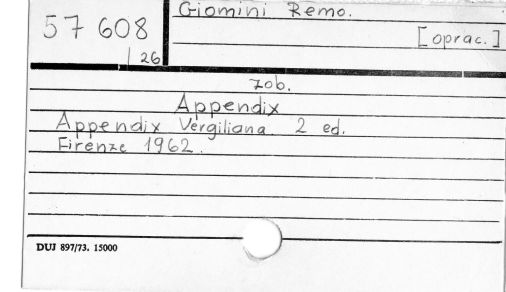 Giomini Remo.
57 608
[oprac.]
/26
zob.
Appendix
Appendix Vergiliana 2 ed.
Firenze 1962.
DUJ 897/73. 15000